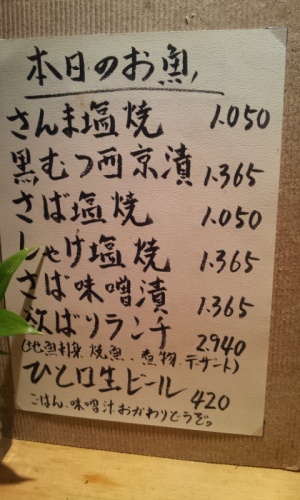 本日のお魚
さんま塩焼 1.050
黒むつ西京漬 1.365
さば塩焼 1.050
しゃけ塩焼 1.365
さば味噌漬 1.365
欲ばりランチ 2.940
(地魚刺身、焼魚、煮物、デザート)
ひと口生ビール 420
ごはん、味噌汁おかわりどうぞっ